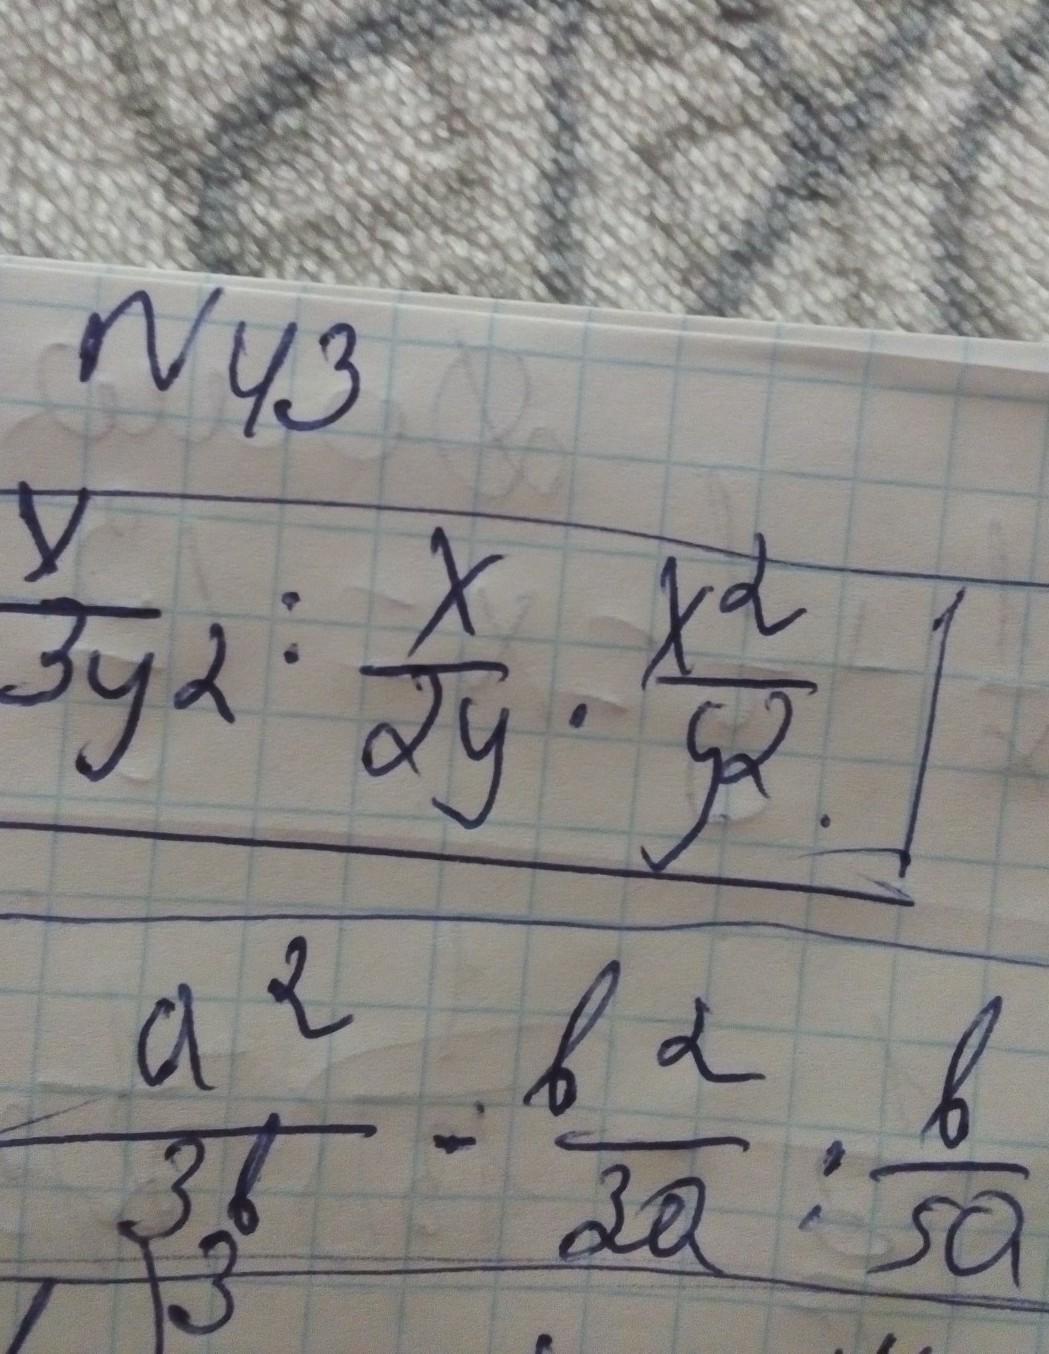 N43
x/3y2 : x/2y · x²/y2.
a²/3b · b²/2a : b/5a
3